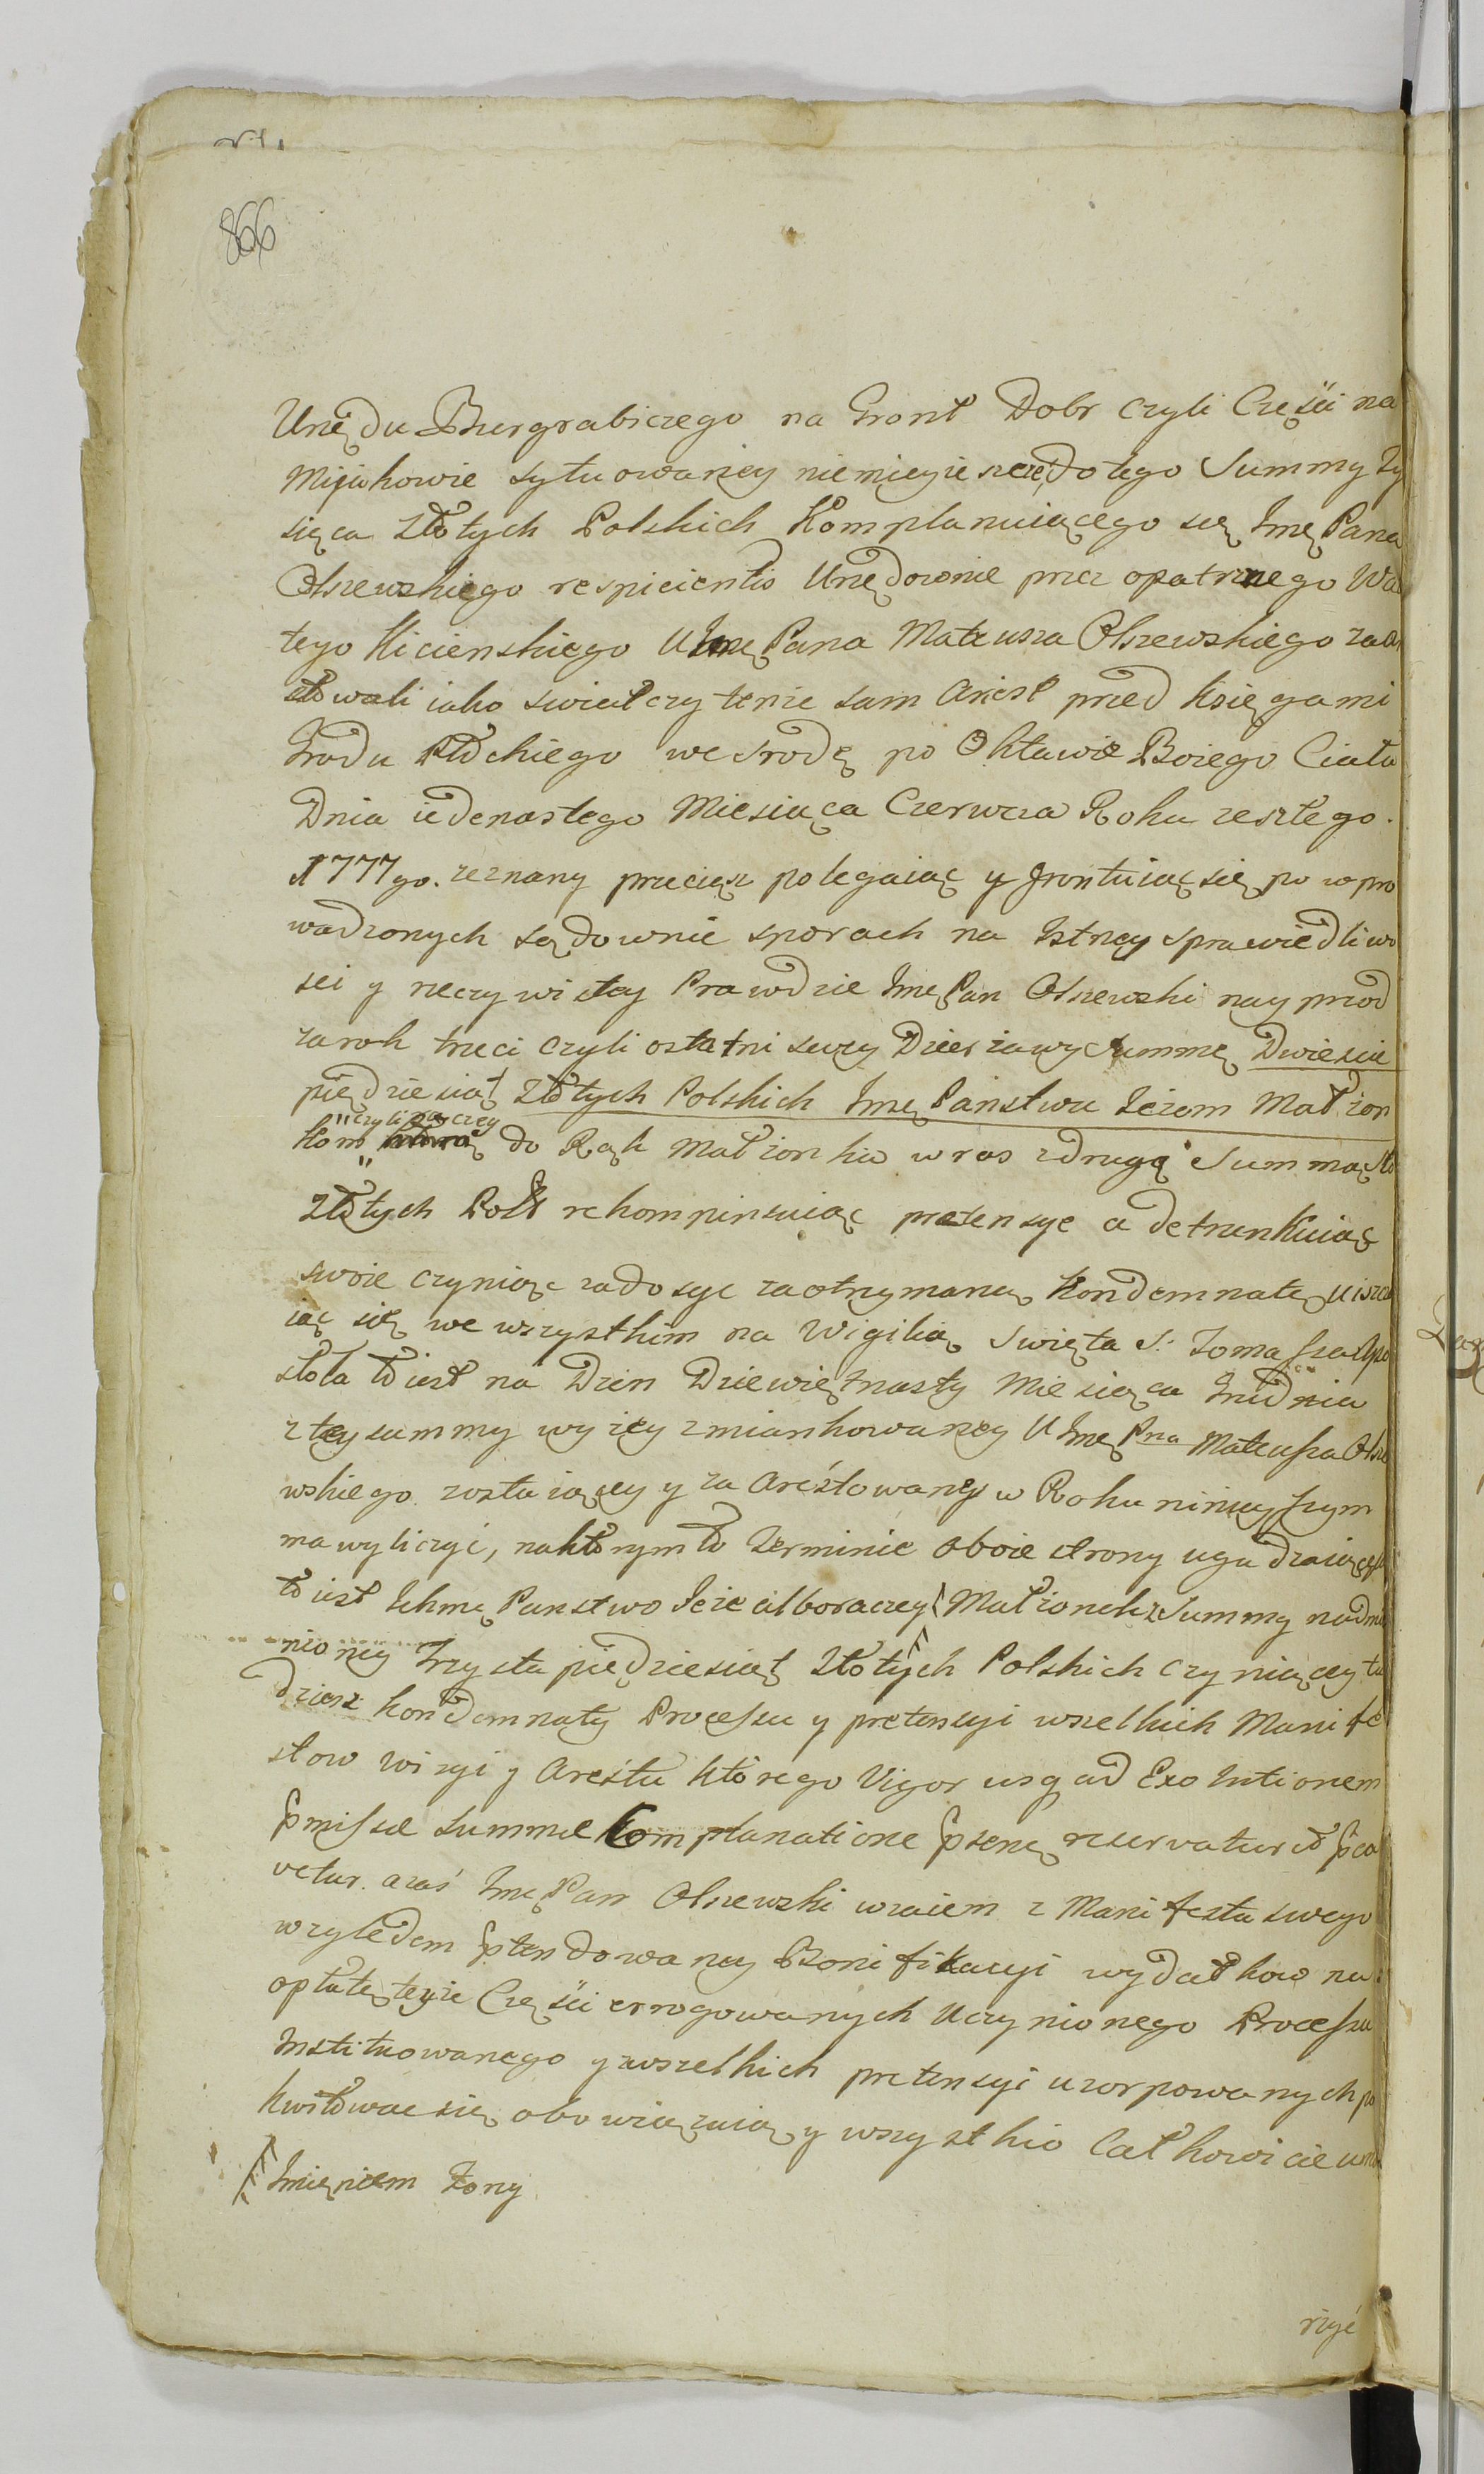 866
Urzędu Burgrabiczego na Gront Dobr czyli Części na
Mijakowie sytuowaney niemięyieszczę do tego Summy Ty
siąca Złotych Polskich Komplanuiącego się Imę Pana
Olszewskiego respicientis Urzędownie przez opatrznego Wa
tego Kicienskiego U Imę Pana Mateusza Olszewskiego zaar
stowali iako swiatczy tenże sam Arest przed Księgami
Grodu Płockiego we srodę po Oktawie Bożego Ciała
Dnia iedenastego Miesiąca Czerwca Roku zeszłego.
1777go. zeznany przeciąż polegaiąc y grontuiąc się po wpro
wadzonych sądownie sporach na Istney sprawiedliwo
sci y rzeczywistey Prawdzie Imę Pan Olszewski nayprzod
za rok trzeci czyli ostatni swey Dzierżawy Summę Dwiescie
piędziesiąt Złotych Polskich Imę Państwu Jeżom Małżon
"czyli raczey
kom do Rąk Małżonka wraz zdrugą Summą Sto
Złotych Pols rekompinsuiąc pretensye a detrunkuiąc
swoie czyniąc zadosyc zaotrzymaną Kondemnatę uiszcza
iąc się we wszystkim na Wigilią Swięta S. Tomasza Apo
stoła to iest na Dzien Dziewiętnasty Miesiąca Grudnia
z tey summy wyżey zmiankowaney U Imę Pna Mateusza Olsze
wskiego zostaiącey y za Arestowaney w Roku ninieyszym
ma wyliczyć, naktorym to Terminie oboie strony ugadzaiące się
to iest Ichmę Panstwo Jeże albo raczey Małżonek z Summy nadmie
nioney Trzysta piędziesiąt Złotych Polskich czyniącey tu
dziesz kondemnaty Processu y pretensyi wszelkich Manife
stow wizyi y Arestu którego Vigor usq ad Exolutionem
pmissae Summae Complanatione psenę reservatur et pca
vetur. azaś Imę Pan Olszewski wzaiem z Manifestu swego
względem ptendowaney Bonifikacyi wydatkow na
opłatę teyże Części errogowanych Uczynionego Processu
Instituowanego y wszelkich pretensyi uzorpowanych po
kwitować się obowiązuią y wszystkio Całkowicie umo
Imięniem Żony
rzyć